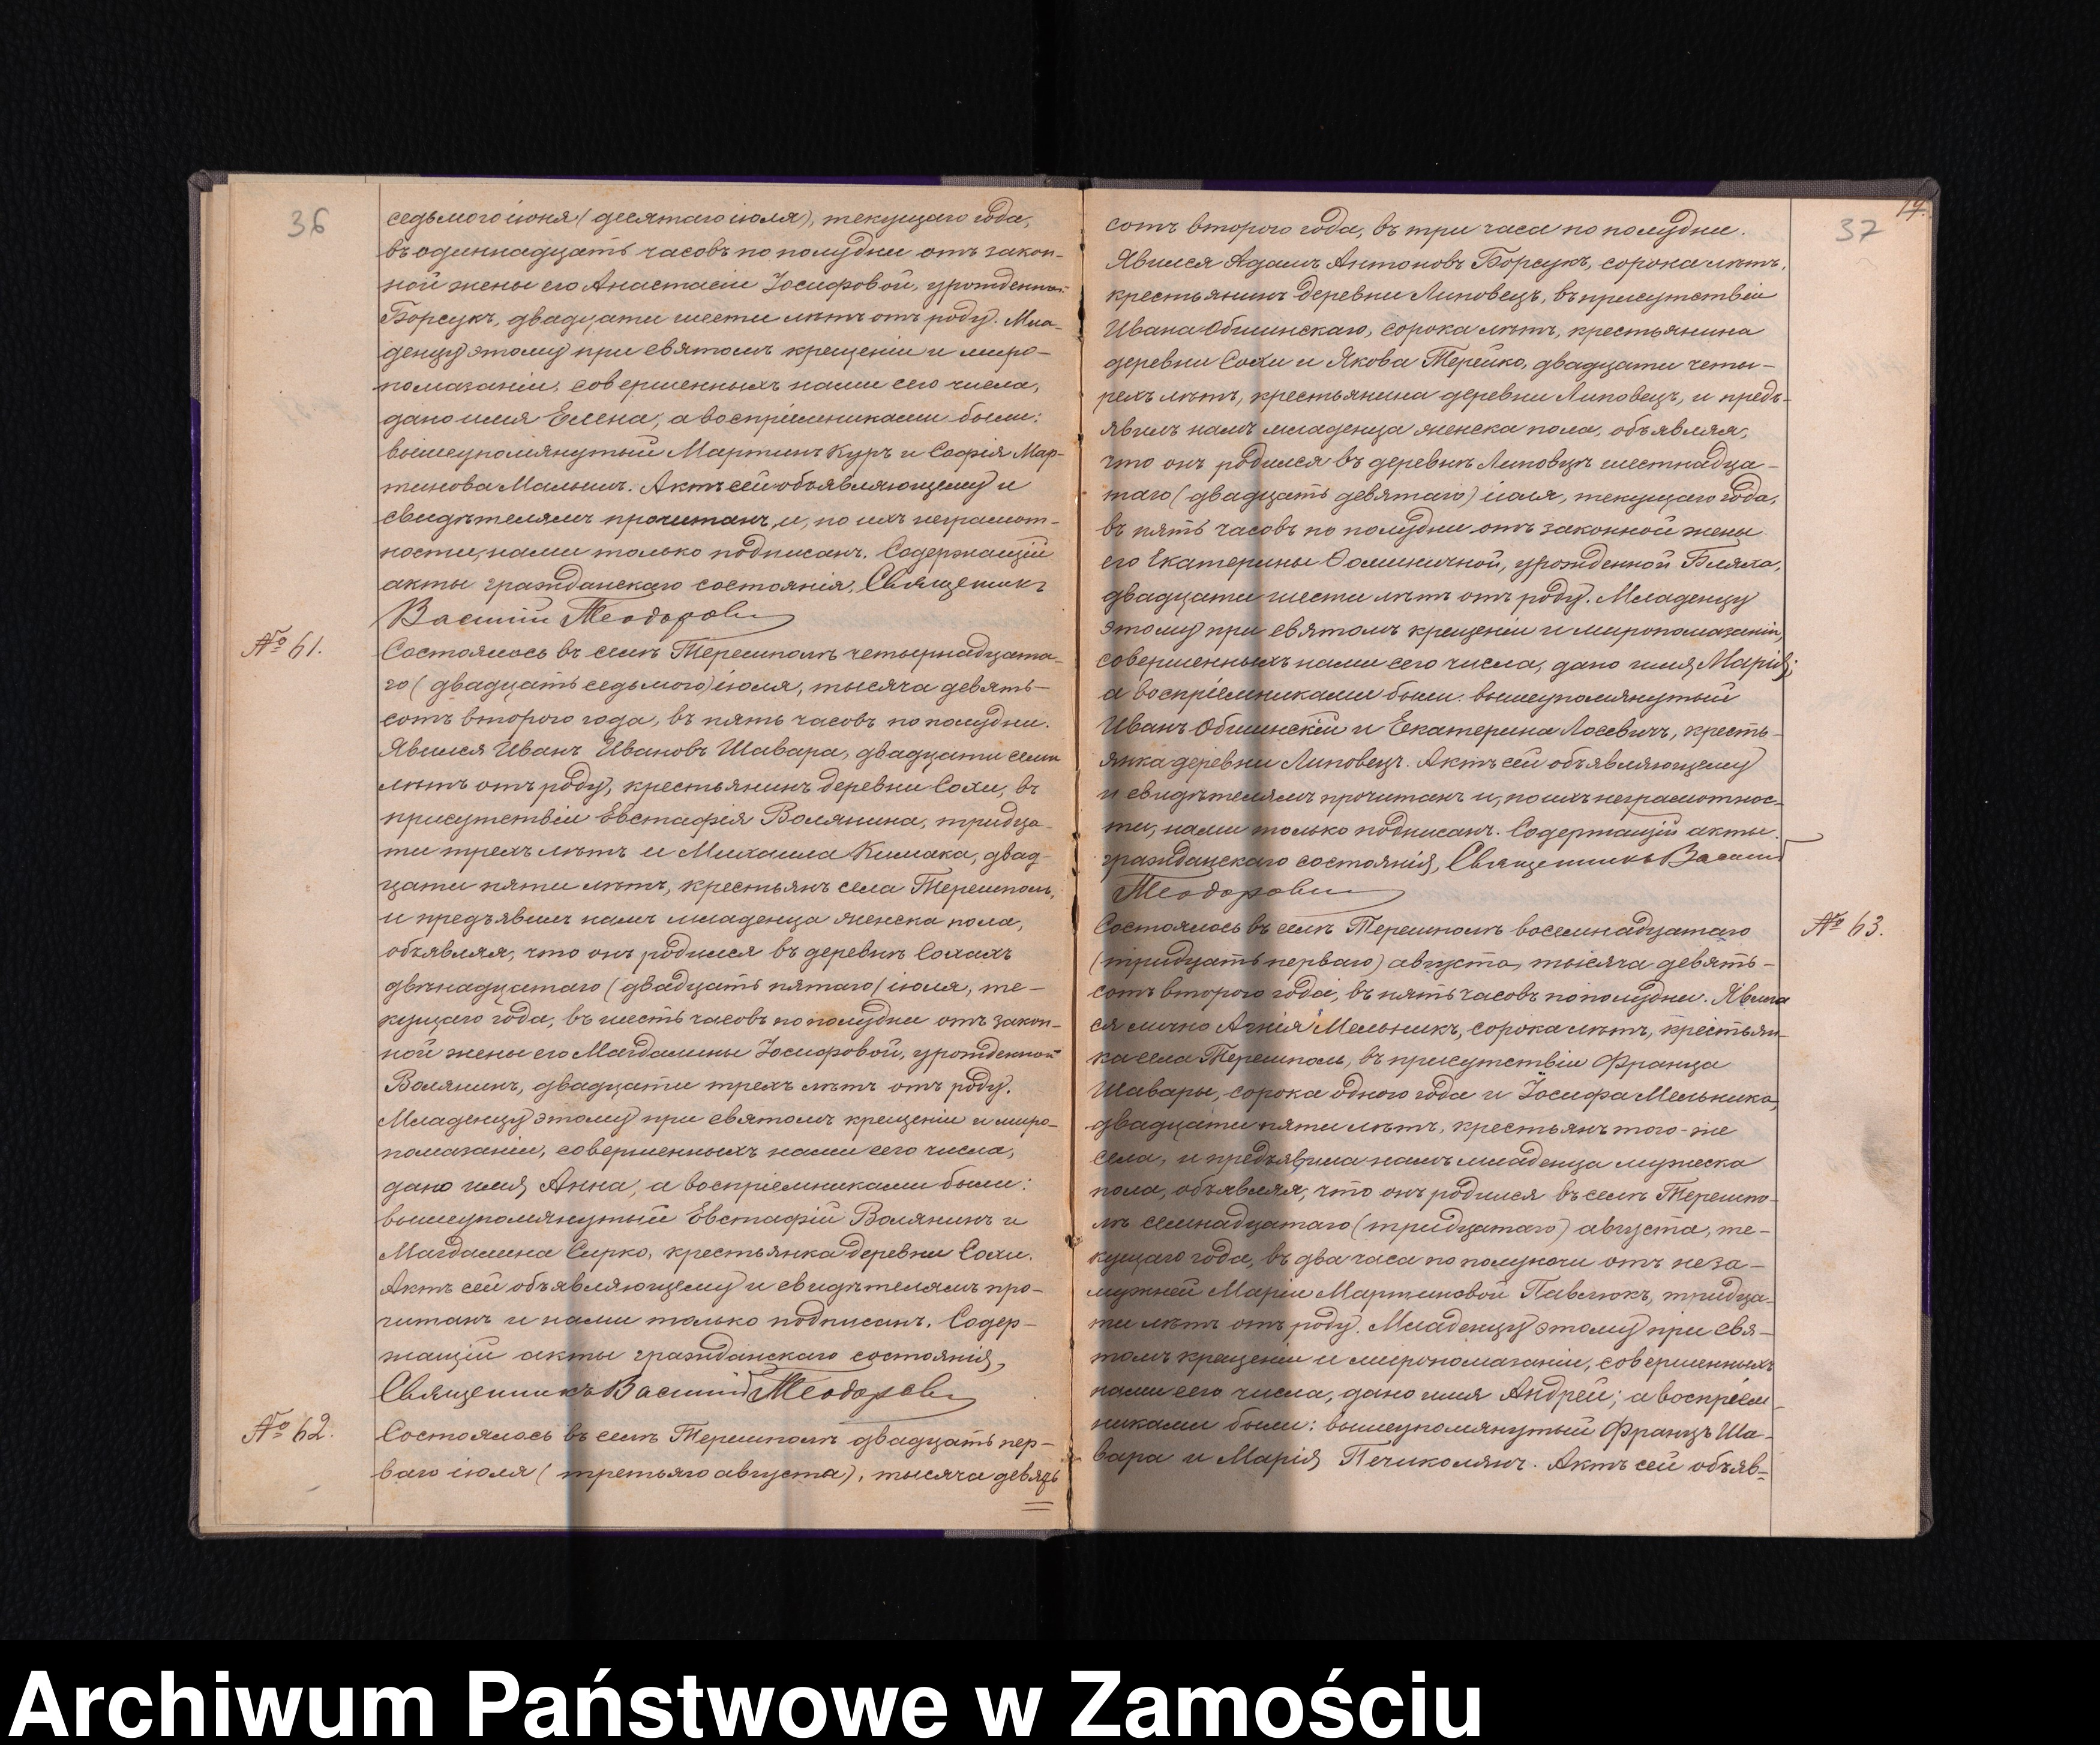 36
седьмого іюня (десятаго іюля), текущаго года,
въ одиннадцать часовъ по полудни отъ закон-
ной жены его Анастасіи Іосифовой, урожденной
Борсукъ, двадцати шести лѣтъ отъ роду. Мла-
денцу этому при святомъ крещеніи и миро-
помазаніи, совершенныхъ нами сего числа,
дано имя Елена, а воспріемниками были:
вышеупомянутый Мартинъ Куръ и Софія Мар-
тинова Мальчи. Актъ сей объявляющему и
свидѣтелямъ прочитанъ, и, по ихъ неграмот-
ности, нами только подписанъ. Содержащій
акты гражданскаго состоянія, Священникъ
Василій Теодорович
№ 61.
Состоялось въ селѣ Терешполѣ четырнадцата-
го (двадцать седьмого) іюля, тысяча девять-
сотъ второго года, въ пять часовъ по полудни.
Явился Иванъ Ивановъ Шавара, двадцати семи
лѣтъ отъ роду, крестьянинъ деревни Сохи, въ
присутствіи Евстафія Волянина, тридца-
ти трехъ лѣтъ и Михаила Кимака, двад-
цати пяти лѣтъ, крестьянъ села Терешполь,
и предъявилъ намъ младенца женска пола,
объявляя, что онъ родился въ деревнѣ Сохахъ
двѣнадцатаго (двадцать пятаго) іюля, те-
кущаго года, въ шесть часовъ по полудни отъ закон-
ной жены его Магдалины Іосифовой, урожденной
Волянинъ, двадцати трехъ лѣтъ отъ роду.
Младенцу этому при святомъ крещеніи и миро-
помазаніи, совершенныхъ нами сего числа,
дано имя Анна, а воспріемниками были:
вышеупомянутый Евстафій Волянинъ и
Магдалина Сирко, крестьянка деревни Сохи.
Актъ сей объявляющему и свидѣтелямъ про-
читанъ и нами только подписанъ. Содер-
жащій акты гражданскаго состоянія,
Священникъ Василій Теодорович
№ 62.
Состоялось въ селѣ Терешполѣ двадцать пер-
ваго іюля (третьяго августа), тысяча девять
37
19.
сотъ второго года, въ три часа по полудни.
Явился Адамъ Антоновъ Борсукъ, сорока лѣтъ,
крестьянинъ деревни Липовецъ, въ присутствіи
Ивана Обшинскаго, сорока лѣтъ, крестьянина
деревни Сохи и Якова Терейко, двадцати четы-
рехъ лѣтъ, крестьянина деревни Липовецъ, и предъ-
явилъ намъ младенца женска пола, объявляя,
что онъ родился въ деревнѣ Липовцѣ шестнадца-
таго (двадцать девятаго) іюля, текущаго года,
въ пять часовъ по полудни отъ законной жены
его Екатерины Ѳоминичной, урожденной Бляха,
двадцати шести лѣтъ отъ роду. Младенцу
этому при святомъ крещеніи и миропомазаніи,
совершенныхъ нами сего числа, дано имя Марія;
а воспріемниками были: вышеупомянутый
Иванъ Обшинскій и Екатерина Лосевичъ, кресть-
янка деревни Липовецъ. Актъ сей объявляющему
и свидѣтелямъ прочитанъ и, по ихъ неграмотнос-
ти, нами только подписанъ. Содержащій акты
гражданскаго состоянія, Священникъ Василій
Теодорович
№ 63.
Состоялось въ селѣ Терешполѣ восемнадцатаго
(тридцать перваго) августа, тысяча девять-
сотъ второго года, въ пять часовъ по полудни. Явила
ся лично Агнія Мельникъ, сорока лѣтъ, крестьян-
ка села Терешполь, въ присутствіи Франца
Шавары, сорока одного года и Іосифа Мельника,
двадцати пяти лѣтъ, крестьянъ того-же
села, и предъявила намъ младенца мужеска
пола, объявляя, что онъ родился въ селѣ Терешпо-
лѣ семнадцатаго (тридцатаго) августа, те-
кущаго года, въ два часа по полуночи отъ неза-
мужней Маріи Мартиновой Павлюкъ, тридца-
ти лѣтъ отъ роду. Младенцу этому при свя-
томъ крещеніи и миропомазаніи, совершенныхъ
нами сего числа, дано имя Андрей; а воспріем-
никами были: вышеупомянутый Францъ Ша-
вара и Марія Печиколянъ. Актъ сей объяв-
Archiwum Państwowe w Zamościu